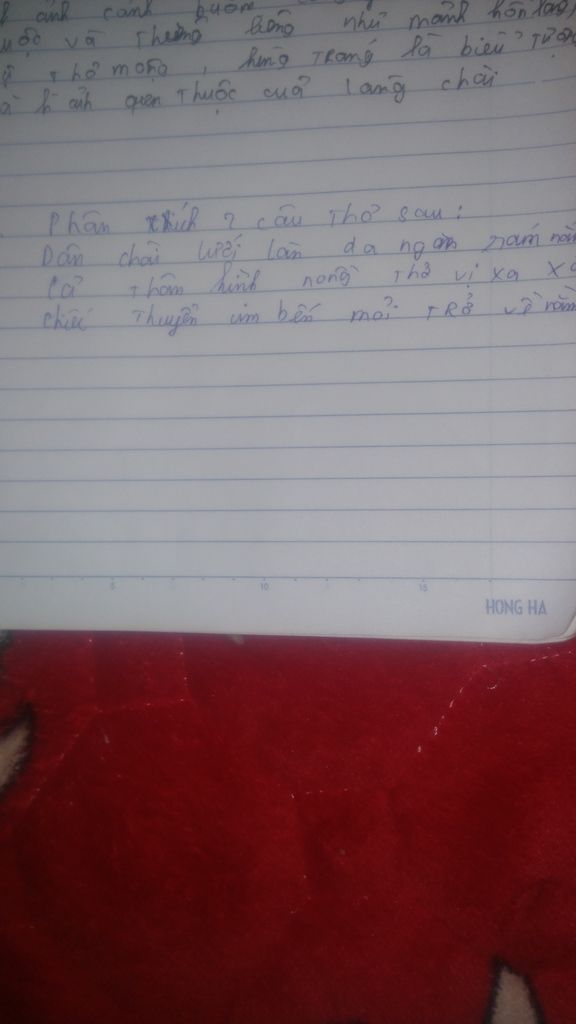 ảnh cánh buồm
và Thường liêng như mảnh hồn làng,
Thơ mộng, hùng Tráng là biểu Tượng
h ảnh quen Thuộc cuả làng chài
Phân tích 2 câu Thơ sau:
Dân chài lưới làn da ngăm rám nắn
Cả Thân hình nồng Thở vị xa xă
chiếc Thuyền im bến mỏi TRở về nằm
5 10 15
HONG HA